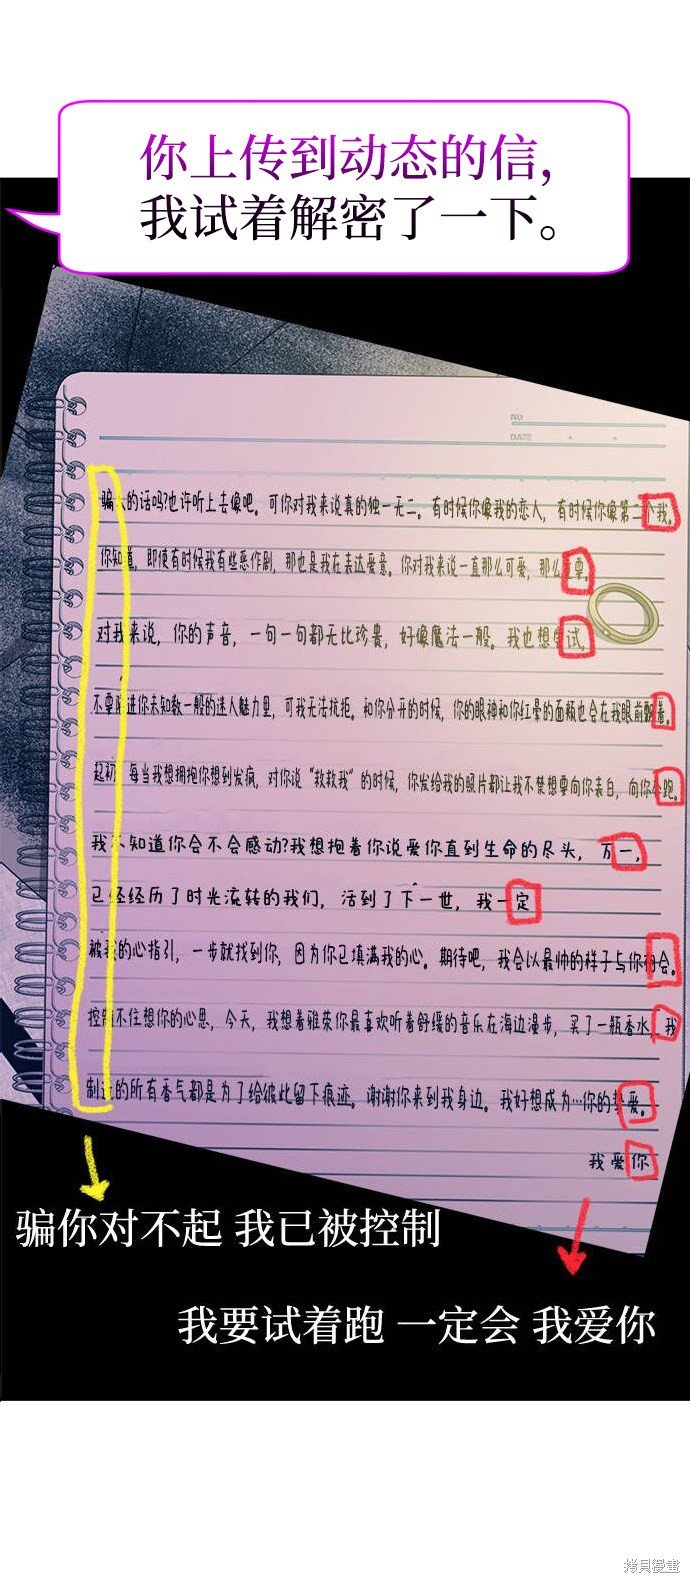 你上传到动态的信,
我试着解密了一下。
NO
DATE
骗人的话吗?也许听上去像吧。可你对我来说真的独一无二。有时候你像我的恋人,有时候你像第二个我。
你知道,即便有时候我有些恶作剧,那也是我在表达爱意。你对我来说一直那么可爱,那么重要。
对我来说,你的声音,一句一句都无比珍贵,好像魔法一般。我也想试试,
不要陷进你未知数一般的迷人魅力里,可我无法抗拒。和你分开的时候,你的眼神和你红晕的面颊也会在我眼前飘着。
起初,每当我想拥抱你想到发疯,对你说“救救我”的时候,你发给我的照片都让我不禁想要向你表白,向你奔跑。
我不知道你会不会感动?我想抱着你说爱你直到生命的尽头,万一,
已经经历了时光流转的我们,活到了下一世,我一定
被我的心指引,一步就找到你,因为你已填满我的心。期待吧,我会以最帅的样子与你相会。
控制不住想你的心思,今天,我想着雅荣你最喜欢听着舒缓的音乐在海边漫步,买了一瓶香水,我
制造的所有香气都是为了给彼此留下痕迹。谢谢你来到我身边。我好想成为…你的挚爱。
我爱你
骗你对不起 我已被控制
我要试着跑 一定会 我爱你
拷貝漫畫